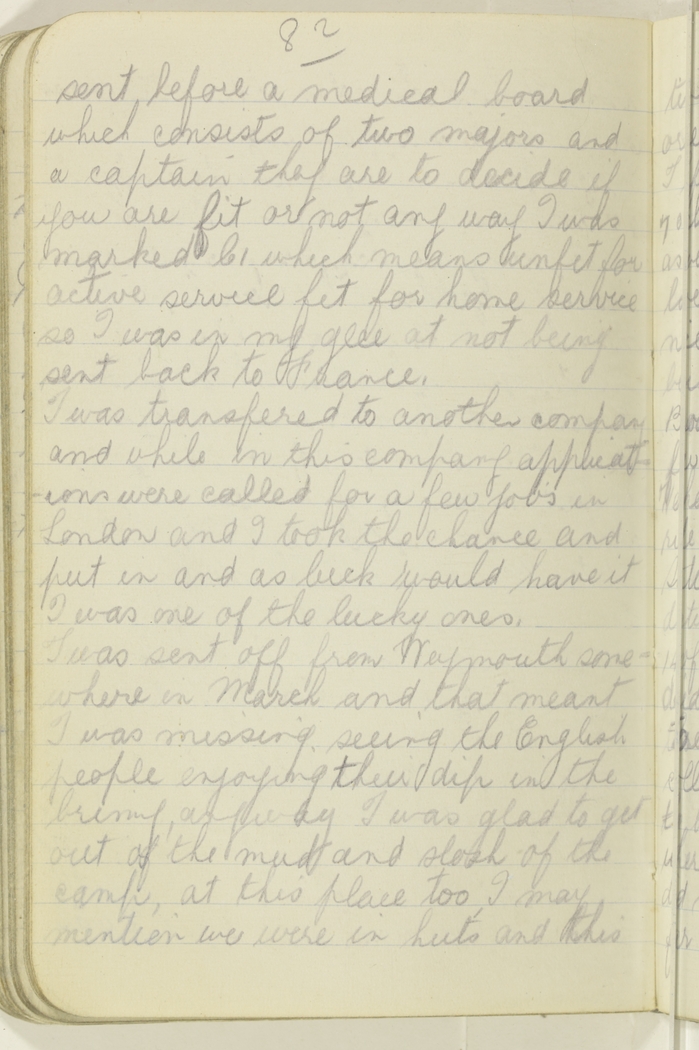 82
sent before a medical board
which consists of two majors and
a captain they are to decide if
you are fit or not any way I was
marked B1 which means unfit for
active service fit for home service
so I was in my glee at not being
sent back to France.
I was transfered to another company
and while in this company applicat-
-ions were called for a few jobs in
London and I took the chance and
put in and as luck would have it
I was one of the lucky ones.
I was sent off from Weymouth some-
where in March and that meant
I was missing seeing the English
people enjoying their dip in the
briny, anyway I was glad to get
out of the mud and slosh of the
camp, at this place too, I may
mention we were in huts and this